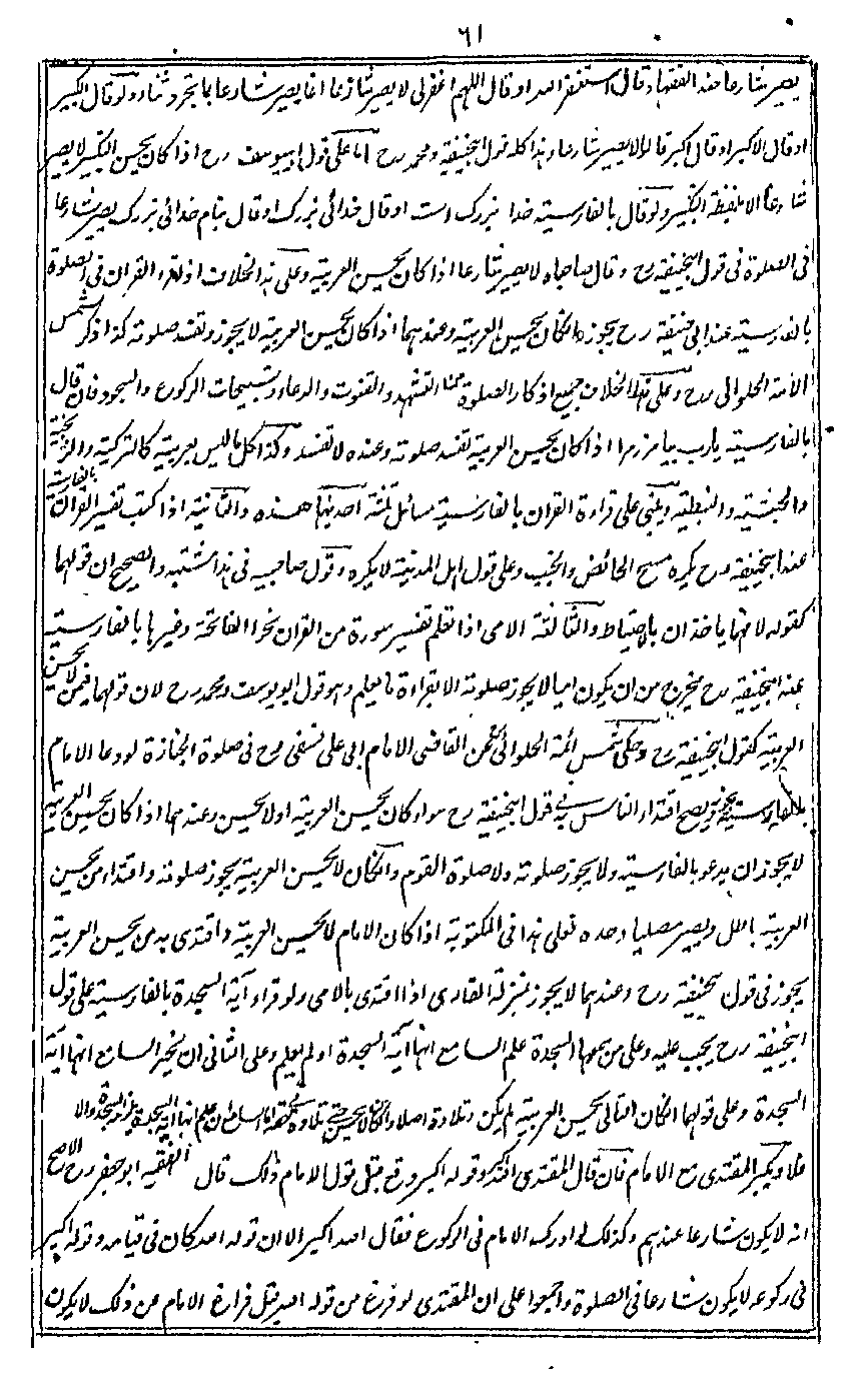 ٦١
يصير شارعا عند الفقهاء وقال استغفر الله او قال اللهم اغفر لى لا يصير شارعا انما يصير شارعا بما تجرد ثناء ولو قال الكبير
او قال الاكبر او قال اكبر قالوا لا يصير شارعا وهذا كله قول ابيحنيفة ومحمد رح اما على قول ابيوسف رح اذا كان يحسن التكبير لا يصير
شارعا الا بلفظة التكبير ولو قال بالفارسية خدا بزرگ است او قال خدائى بزرگ او قال بنام خدائى بزرگ يصير شارعا
فى الصلوة فى قول ابيحنيفة رح وقال صاحباه لا يصير شارعا اذا كان يحسن العربية وعلى هذا الخلاف اذا قرء القران فى الصلوة
بالفارسية عند ابى حنيفة رح يجوز وان كان يحسن العربية وعندهما اذا كان يحسن العربية لا يجوز وتفسد صلوته كذا ذكر شمس
الأمة الحلوائى رح وعلى هذا الخلاف جميع اذكار الصلوة من التشهد والقنوت والدعاء وتسبيحات الركوع والسجود فان قال
بالفارسية يارب بيامرزم اذا كان يحسن العربية تفسد صلوته وعنده لا تفسد وكذا كل ما ليس بعربية كالتركية والزنجية
والحبشية والنبطية ويبتنى على قراءة القران بالفارسية مسائل ثلثة احدها هذه والثانية اذا كتب تفسير القران بالفارسية
عند ابيحنيفة رح يكره مسح الحائض والجنب وعلى قول اهل المدينة لا يكره وقول صاحبيه فى هذا مشتبه والصحيح ان قولهما
كقوله لانهما ياخذان بالاحتياط والثالثة الامى اذا تعلم تفسير سورة من القران نحو الفاتحة وغيرها بالفارسية
عند ابيحنيفة رح يخرج من ان يكون اميا لا يجوز صلوته الا بقراءة ما يعلم وهو قول ابويوسف ومحمد رح لان قولهما فيمن لا يحسن
العربية كقول ابيحنيفة رح وحكى شمس ائمة الحلوائى عن القاضى الامام ابى على نسفى رح فى صلوة الجنازة لو دعا الامام
بالفارسية يجوز ويصح اقتداء الناس به فى قول ابيحنيفة رح سواء كان يحسن العربية او لا يحسن وعندهما اذا كان يحسن العربية
لا يجوز ان يدعو بالفارسية ولا يجوز صلوته ولا صلوة القوم وان كان لا يحسن العربية يجوز صلوته واقتداء من يحسن
العربية باطل ويصير مصليا وحده فعلى هذا فى المكتوبة اذا كان الامام لا يحسن العربية واقتدى به من يحسن العربية
يجوز فى قول ابيحنيفة رح وعندهما لا يجوز بمنزلة القارى اذا اقتدى بالامى ولو قراء آية السجدة بالفارسية على قول
ابيحنيفة رح يجب عليه وعلى من سمعها السجدة علم السامع انها آية السجدة او لم يعلم وعلى الثانى ان يخبر السامع انها آية
السجدة وعلى قولهما ان كان التالى يحسن العربية لم يكن تلاوة اصلا وان كان لا يحسن ان علم انها آية السجدة يلزمه السجدة والا
فلا ويكبر المقتدى مع الامام فان قال المقتدى الله اكبر وقوله اكبر وقع قبل قول الامام ذلك قال الفقيه ابوجعفر رح الاصح
انه لا يكون شارعا عندهم وكذلك لو ادرك الامام فى الركوع فقال الله اكبر الا ان قوله الله كان فى قيامه وقوله اكبر
فى ركوعه لا يكون شارعا فى الصلوة واجمعوا على ان المقتدى لو فرغ من قوله الله قبل فراغ الامام من ذلك لا يكون